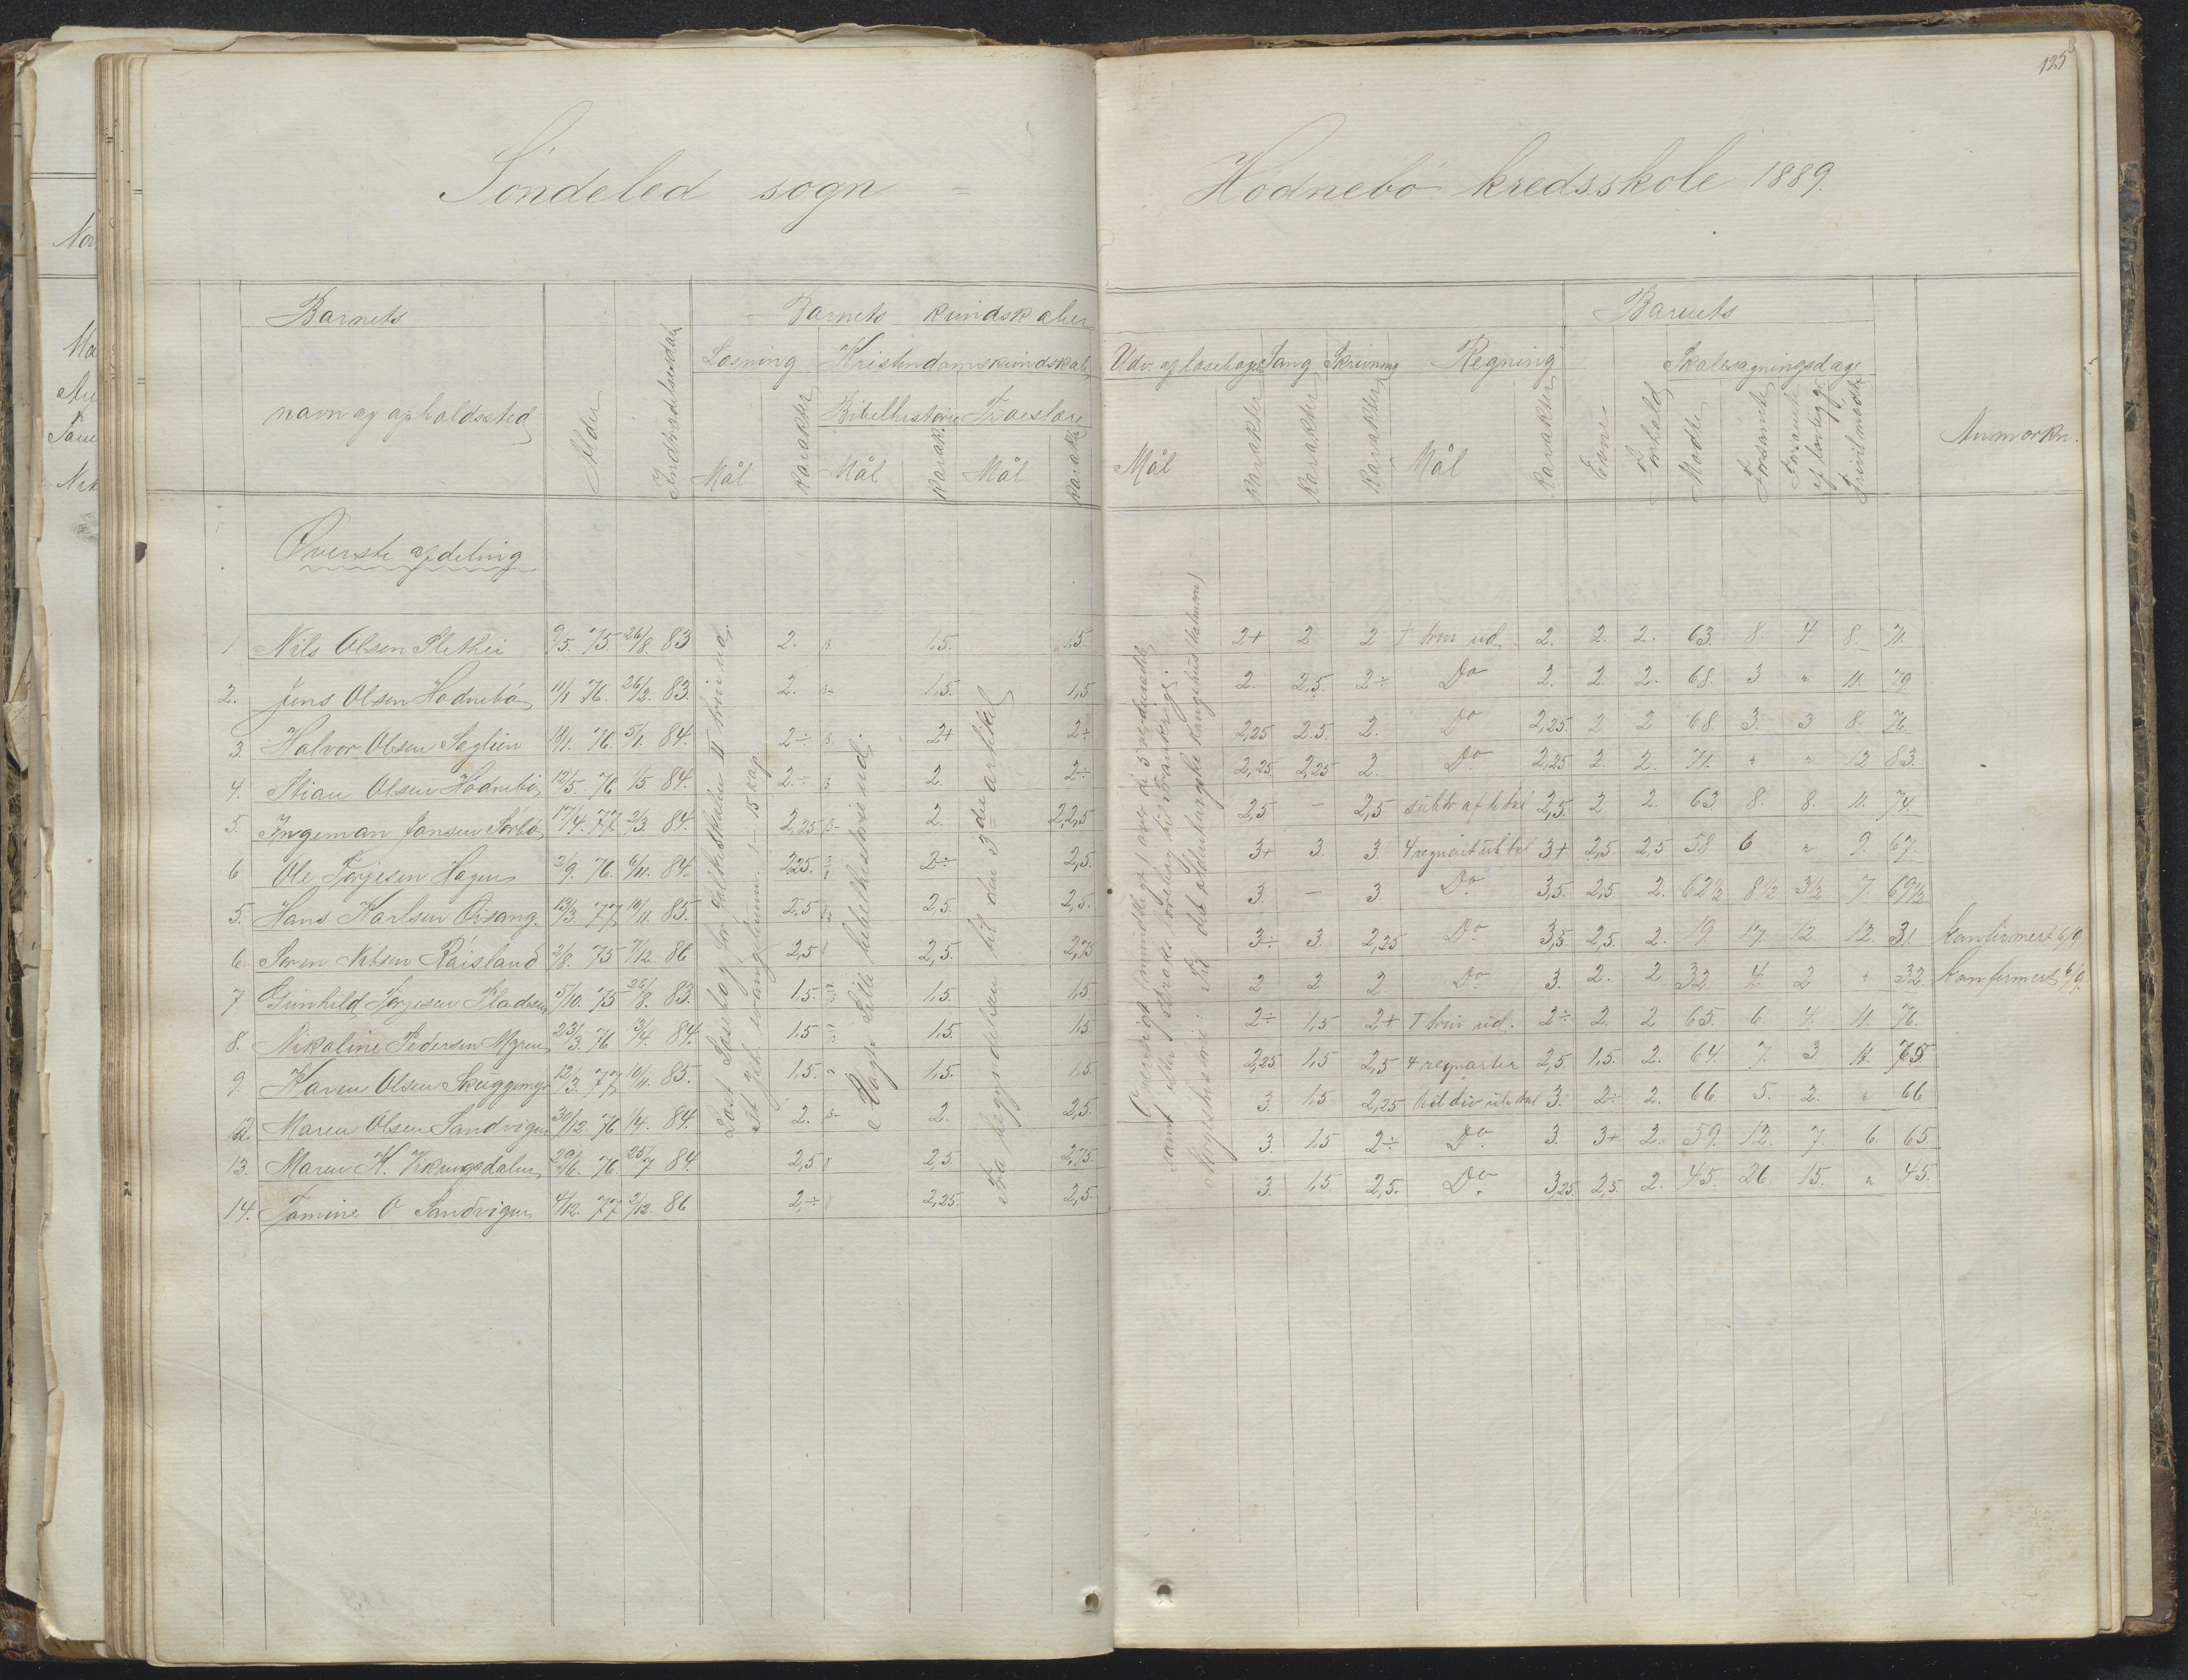 125
Søndeled sogn =
Hødnebø kredsskole 1889.
Barnets
navn og opholdssted
Alder
Indtrædelsesdat.
Barnets kundskaber
Læsning
Kristendomskundskab
Bibelhistorie
Troeslære
Mål
Karakter
Mål
Karak.
Mål
Karakt.
Udv. af læsebogen
Sang
Skrivning
Regning
Mål
Karakter
Karakter
Karakter
Mål
Karakter
Barnets
Evne
Forhold
Skolesøgningsdage
Mødte
Forsømte
Forsømte af lovlig gr.
Frivil. mødte
Anmærkn.
Øverste afdeling
1 Nils Olsen 9/5. 75 26/8. 83 2. 1,5. 1,5 2+ 2. 2 I trin ud. 2. 2. 2. 63. 8. 4 8. 71.
2. Jens Olsen Hødnebø 11/1 76. 26/2. 83. 2. 1,5. 1,5 2. 2,5. 2÷ Do 2. 2. 2. 68. 3 " 11. 79
3. Halvor Olsen Saglien 10/1. 76. 5/1. 84. 2÷ 2+ 2÷ 2,25 2.5. 2. Do 2,25. 2 2 68. 3. 3 8. 76.
4. Stian Olsen Hødnebø 12/5. 76 1/5. 84. 2÷ 2. 2÷ 2,25 2,25 2. Do. 2,25 2. 2. 71. " " 12 83.
5. Ingeman Jansen Sørbø 17/4. 77 2/3. 84. 2,25 2. 2,25 2,5 – 2,5 subtr af h tal 2,5. 2 2. 63. 8. 8. 11. 74.
6 Ole Torjesen Hagen 2/9. 76. 6/11. 84. 2,25. 2÷ 2,5. 3+ 3. 3. 3+ 2,5. 2,5 58 6 " 9. 67.
5. Hans Karlsen 13/3. 77 10/11. 85. 2,5 2,5. 2,5. 3. – 3 Do. 3,5. 2,5 2. 62 1/2 8 1/2 3 1/2 7. 69 1/2
6. Søren Nilsen Røisland 2/8. 75 7/12. 86 2,5 2,5. 2,75 3÷ 3. 2,25 Do. 3,5. 2,5. 2. 19 17 12. 12. 31. Konfirmert 6/9
7 Gunhild Torjesen Pladsen 5/10. 75 26/8. 83. 1,5. 1,5. 1,5 2 2 2. Do. 3. 2. 2. 32. 4. 2 " 32. Konfirmert 6/9.
8. Nikoline Pedersen Myren 23/3. 76 3/4. 84. 1,5 1,5. 1,5 2÷ 1,5 2+ I trin ud. 2÷ 2. 2 65. 6. 4. 11. 76.
9. Karen Olsen 12/3. 77 10/11. 85. 1,5. 1,5. 1,5 2,25. 1,5 2,5 4 regnarter 2,5. 1,5. 2. 64. 7. 3 11. 75
12. Maren Olsen Sandvigen 31/12. 76 1/4. 84. 2. 2. 2,5. 3. 1,5 2,25 til div h tal 3. 2÷ 2. 66. 5. 2 " 66
13. Maren K. Vikingsdalen 29/6. 76. 25/7 84. 2,5 2,5. 2,75. 3. 1,5 2÷ Do. 3. 3+ 2. 59. 12. 7. 6. 65.
14. Tomine O Sandvigen 4/12. 77. 2/12. 86 2÷ 2,25. 2,5. 3. 1,5 2,5. Do. 3,25. 2,5. 2. 45. 26. 15. " 45.
Læst Læsebog for folkeskolen II trin ud.
St Joh. evangelium. 1 – 15 kap
Vogts lille bibelhistorie ud.
Fra begyndelsen til den 3die artikkel